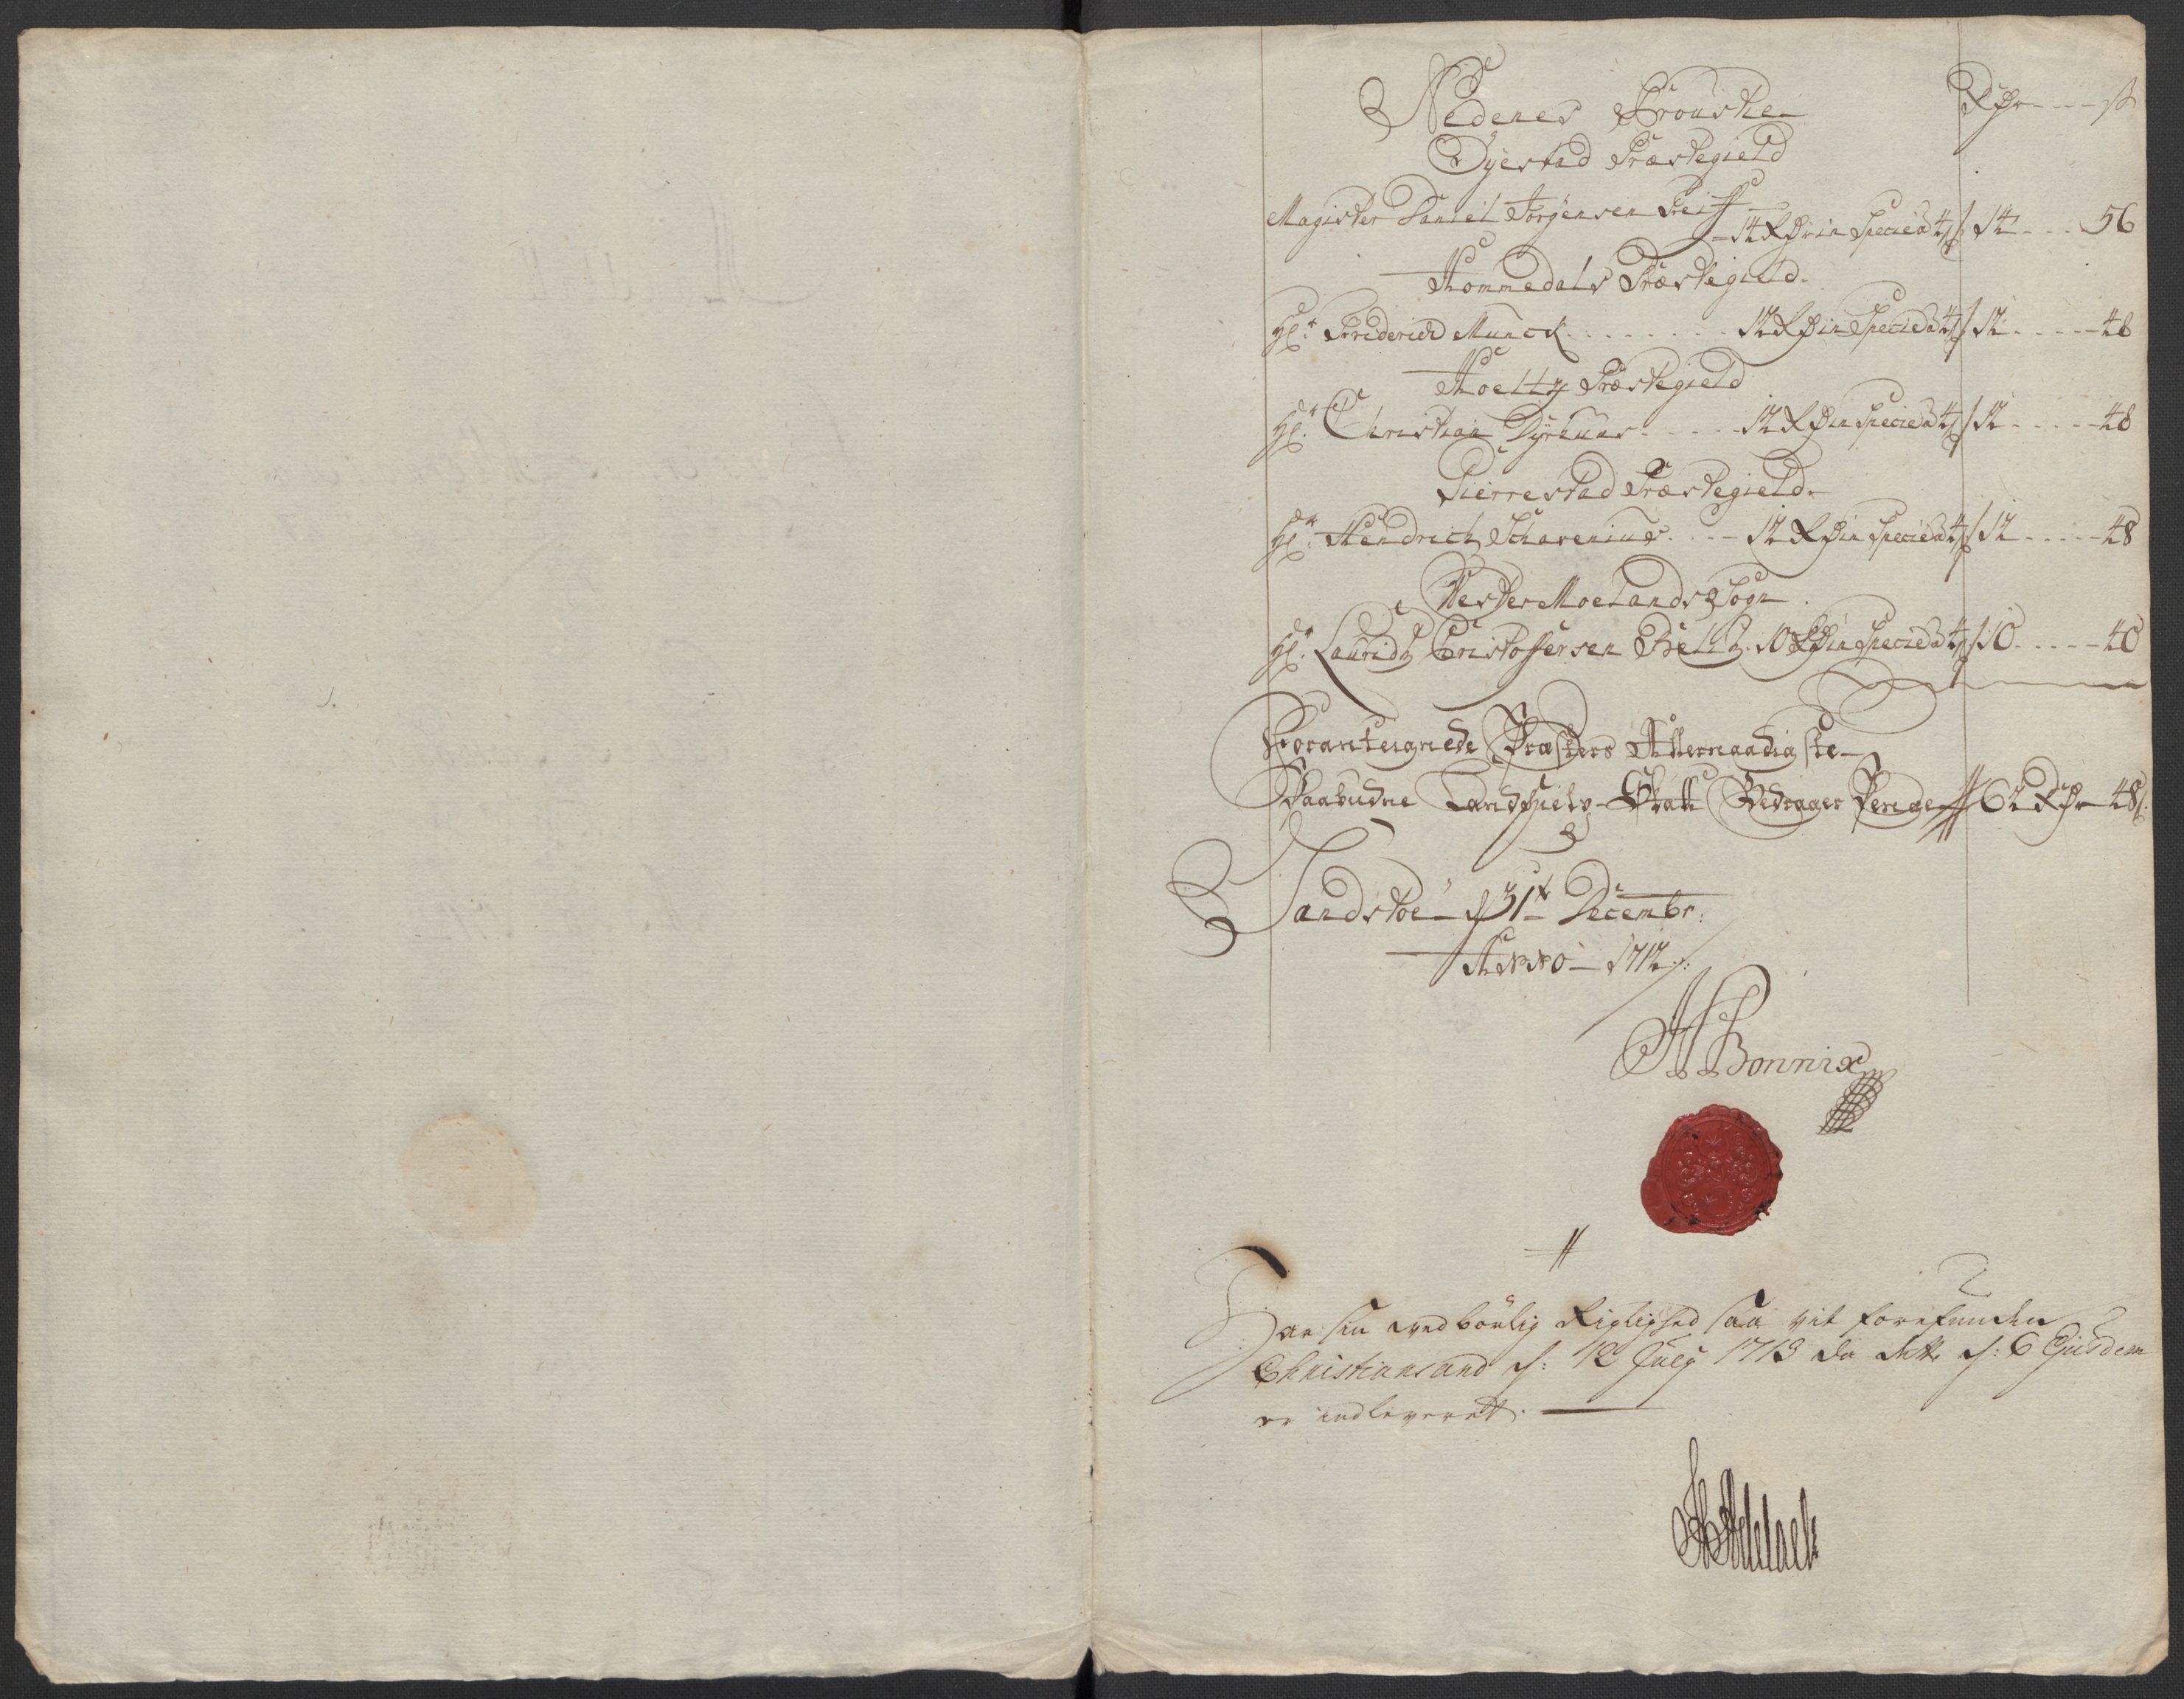 Nedenes Proustie Rdr ß
Øyestad Præstegield
Magister Daniel Jørgensen
14 Rdr in Specie à 4 ß 14 56
Hommedals Præstegield
Hr Friderich Munck 12 Rd in Specie à 4 ß 12 48
Holtz Præstegield
Hr Christian Dyrhuus 12 Rd in Specie à 4 ß 12 48
Gierrestad Præstegield
Hr Hendrich Schavenius 12 Rd in Specie à 4 ß 12 48
Wester Moelands Sogn
Hr Lauridz Christoffersen 10 Rd in Specie à 4 ß 10 40
Foranteignede Præsters Allernaadigste
Paabudne Landhielp Skatt Bedrager Penge 62 Rdr 48 ß
Sandstøe d 31te Decembr:
Anno 1712
Bonnix
saa vit forefunden
Christiansand d: 12 July 1713 da dette d: 6 Ejusdem
er indleveret.